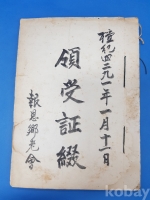 檀紀四二九一年一月十一日
領受証綴
報恩鄕老會
kobay